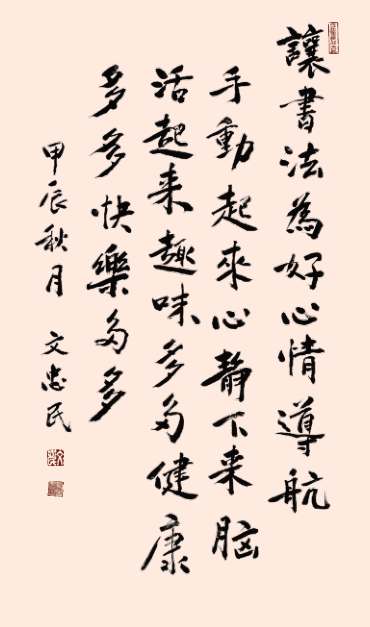 讓書法為好心情導航
手動起來心靜下来脑
活起来趣味多多健康
多多快樂多多
甲辰秋月 文忠民